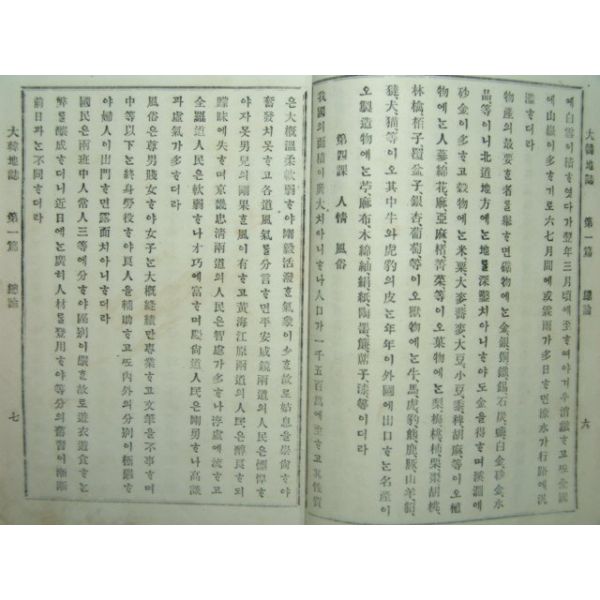 大韓地誌 第一篇 總論 六
에白雪이積ᄒᆞ엿다가翌年三月頃에至ᄒᆞ여야 消融ᄒᆞ고ᄯᅩ
에山嶽이多ᄒᆞ기로六七月間에或霖雨가多日ᄒᆞ면 水가行路에汎
濫ᄒᆞ더라
物産의最要ᄒᆞᆫ者를擧ᄒᆞ면礦物에ᄂᆞᆫ金銀銅鐵錫石炭 白金砂金水
晶等이니北道地方에ᄂᆞᆫ地를深鑿치아니ᄒᆞ야도金을得ᄒᆞ며溪澗에
砂金이多ᄒᆞ고穀物에ᄂᆞᆫ米粟大麥蕎麥大豆小豆黍稗胡麻等이오植
物에ᄂᆞᆫ人蔘綿花麻亞麻楮菁菜等이오菓物에ᄂᆞᆫ梨梅桃柿栗棗胡桃
林檎栢子覆盆子銀杏葡萄等이오獸物에ᄂᆞᆫ牛馬虎豹熊鹿豚山羊貂
獺犬猫等이오其中牛와虎豹의皮ᄂᆞᆫ年年이外國에出口ᄒᆞᄂᆞᆫ名産이
오製造物에ᄂᆞᆫ苧麻布木綿紬絹紙陶器 席子漆等이더라
第四課 人情 風俗
我國의面積이廣大치아니ᄒᆞ나人口가一千五百萬에至ᄒᆞ고其性質
大韓地誌 第一篇 總論 七
은大槪溫柔軟弱ᄒᆞ야剛毅活潑ᄒᆞᆫ氣象이少ᄒᆞᆫ故로姑息을崇尙ᄒᆞ야
奮發치못ᄒᆞ고各道風氣를分言ᄒᆞ면平安咸鏡兩道의人民은慓悍ᄒᆞ
야자못男兒의剛果ᄒᆞᆫ風이有ᄒᆞ고黃海江原兩道의人民은醇良ᄒᆞ되
朦昧에失ᄒᆞ며京畿忠淸兩道의人民은智慮가多ᄒᆞ나浮虛에流ᄒᆞ고
全羅道人民은軟弱ᄒᆞ나才巧에富ᄒᆞ며慶尙道人民은剛勇ᄒᆞ나高談
과虛氣가多ᄒᆞ더라
風俗은尊男賤女ᄒᆞ야女子ᄂᆞᆫ大槪縫績만專業ᄒᆞ고文筆을不事ᄒᆞ며
中等以下ᄂᆞᆫ終身勞役ᄒᆞ야良人을補助ᄒᆞ고ᄯᅩ內外의分別이極嚴ᄒᆞ
야婦人이出門ᄒᆞ면露面치아니ᄒᆞ더라
國民은兩班中人常人三等에分ᄒᆞ야區別이嚴ᄒᆞᆫ故로遊衣遊食ᄒᆞᄂᆞᆫ
弊를釀成ᄒᆞ더니近日에ᄂᆞᆫ廣히人材를登用ᄒᆞ야等分의舊習이漸漸
前日과ᄂᆞᆫ不同ᄒᆞ더라